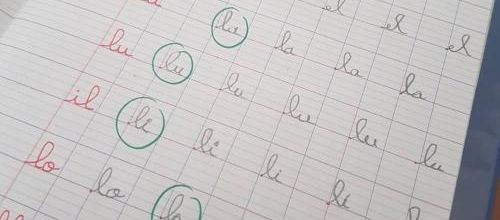 el el el
la la la la
lu lu lu lu lu lu
il li li li li
lo lo lo